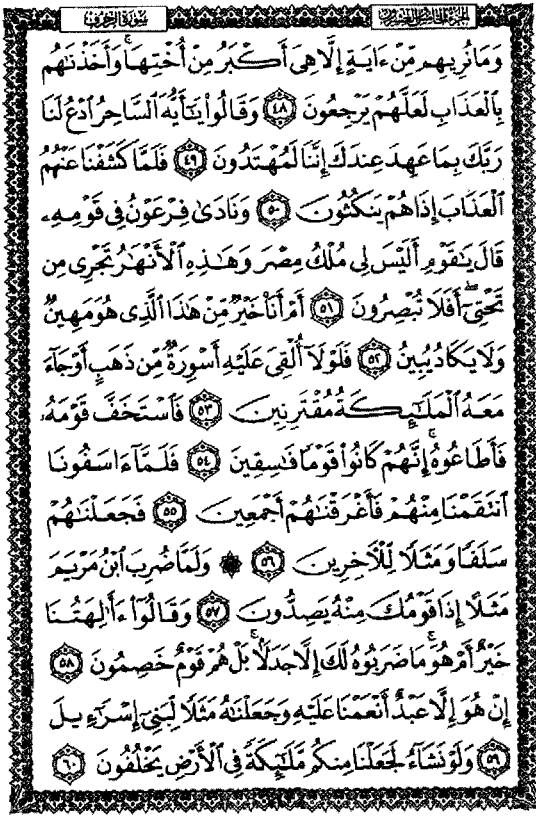 الجزء الخامس والعشرون
سورة الزخرف
وَمَا نُرِيهِم مِّنْ ءَايَةٍ إِلَّا هِىَ أَكْبَرُ مِنْ أُخْتِهَا ۖ وَأَخَذْنَٰهُم
بِٱلْعَذَابِ لَعَلَّهُمْ يَرْجِعُونَ ٤٨ وَقَالُوا۟ يَٰٓأَيُّهَ ٱلسَّاحِرُ ٱدْعُ لَنَا
رَبَّكَ بِمَا عَهِدَ عِندَكَ إِنَّنَا لَمُهْتَدُونَ ٤٩ فَلَمَّا كَشَفْنَا عَنْهُمُ
ٱلْعَذَابَ إِذَا هُمْ يَنكُثُونَ ٥٠ وَنَادَىٰ فِرْعَوْنُ فِى قَوْمِهِۦ
قَالَ يَٰقَوْمِ أَلَيْسَ لِى مُلْكُ مِصْرَ وَهَٰذِهِ ٱلْأَنْهَٰرُ تَجْرِى مِن
تَحْتِىٓ ۖ أَفَلَا تُبْصِرُونَ ٥١ أَمْ أَنَا۠ خَيْرٌ مِّنْ هَٰذَا ٱلَّذِى هُوَ مَهِينٌ
وَلَا يَكَادُ يُبِينُ ٥٢ فَلَوْلَآ أُلْقِىَ عَلَيْهِ أَسْوِرَةٌ مِّن ذَهَبٍ أَوْ جَآءَ
مَعَهُ ٱلْمَلَٰٓئِكَةُ مُقْتَرِنِينَ ٥٣ فَٱسْتَخَفَّ قَوْمَهُۥ
فَأَطَاعُوهُ ۚ إِنَّهُمْ كَانُوا۟ قَوْمًا فَٰسِقِينَ ٥٤ فَلَمَّآ ءَاسَفُونَا
ٱنتَقَمْنَا مِنْهُمْ فَأَغْرَقْنَٰهُمْ أَجْمَعِينَ ٥٥ فَجَعَلْنَٰهُمْ
سَلَفًا وَمَثَلًا لِّلْءَاخِرِينَ ٥٦ ۞ وَلَمَّا ضُرِبَ ٱبْنُ مَرْيَمَ
مَثَلًا إِذَا قَوْمُكَ مِنْهُ يَصِدُّونَ ٥٧ وَقَالُوٓا۟ ءَأَٰلِهَتُنَا
خَيْرٌ أَمْ هُوَ ۚ مَا ضَرَبُوهُ لَكَ إِلَّا جَدَلًۢا ۚ بَلْ هُمْ قَوْمٌ خَصِمُونَ ٥٨
إِنْ هُوَ إِلَّا عَبْدٌ أَنْعَمْنَا عَلَيْهِ وَجَعَلْنَٰهُ مَثَلًا لِّبَنِىٓ إِسْرَٰٓءِيلَ
٥٩ وَلَوْ نَشَآءُ لَجَعَلْنَا مِنكُم مَّلَٰٓئِكَةً فِى ٱلْأَرْضِ يَخْلُفُونَ ٦٠